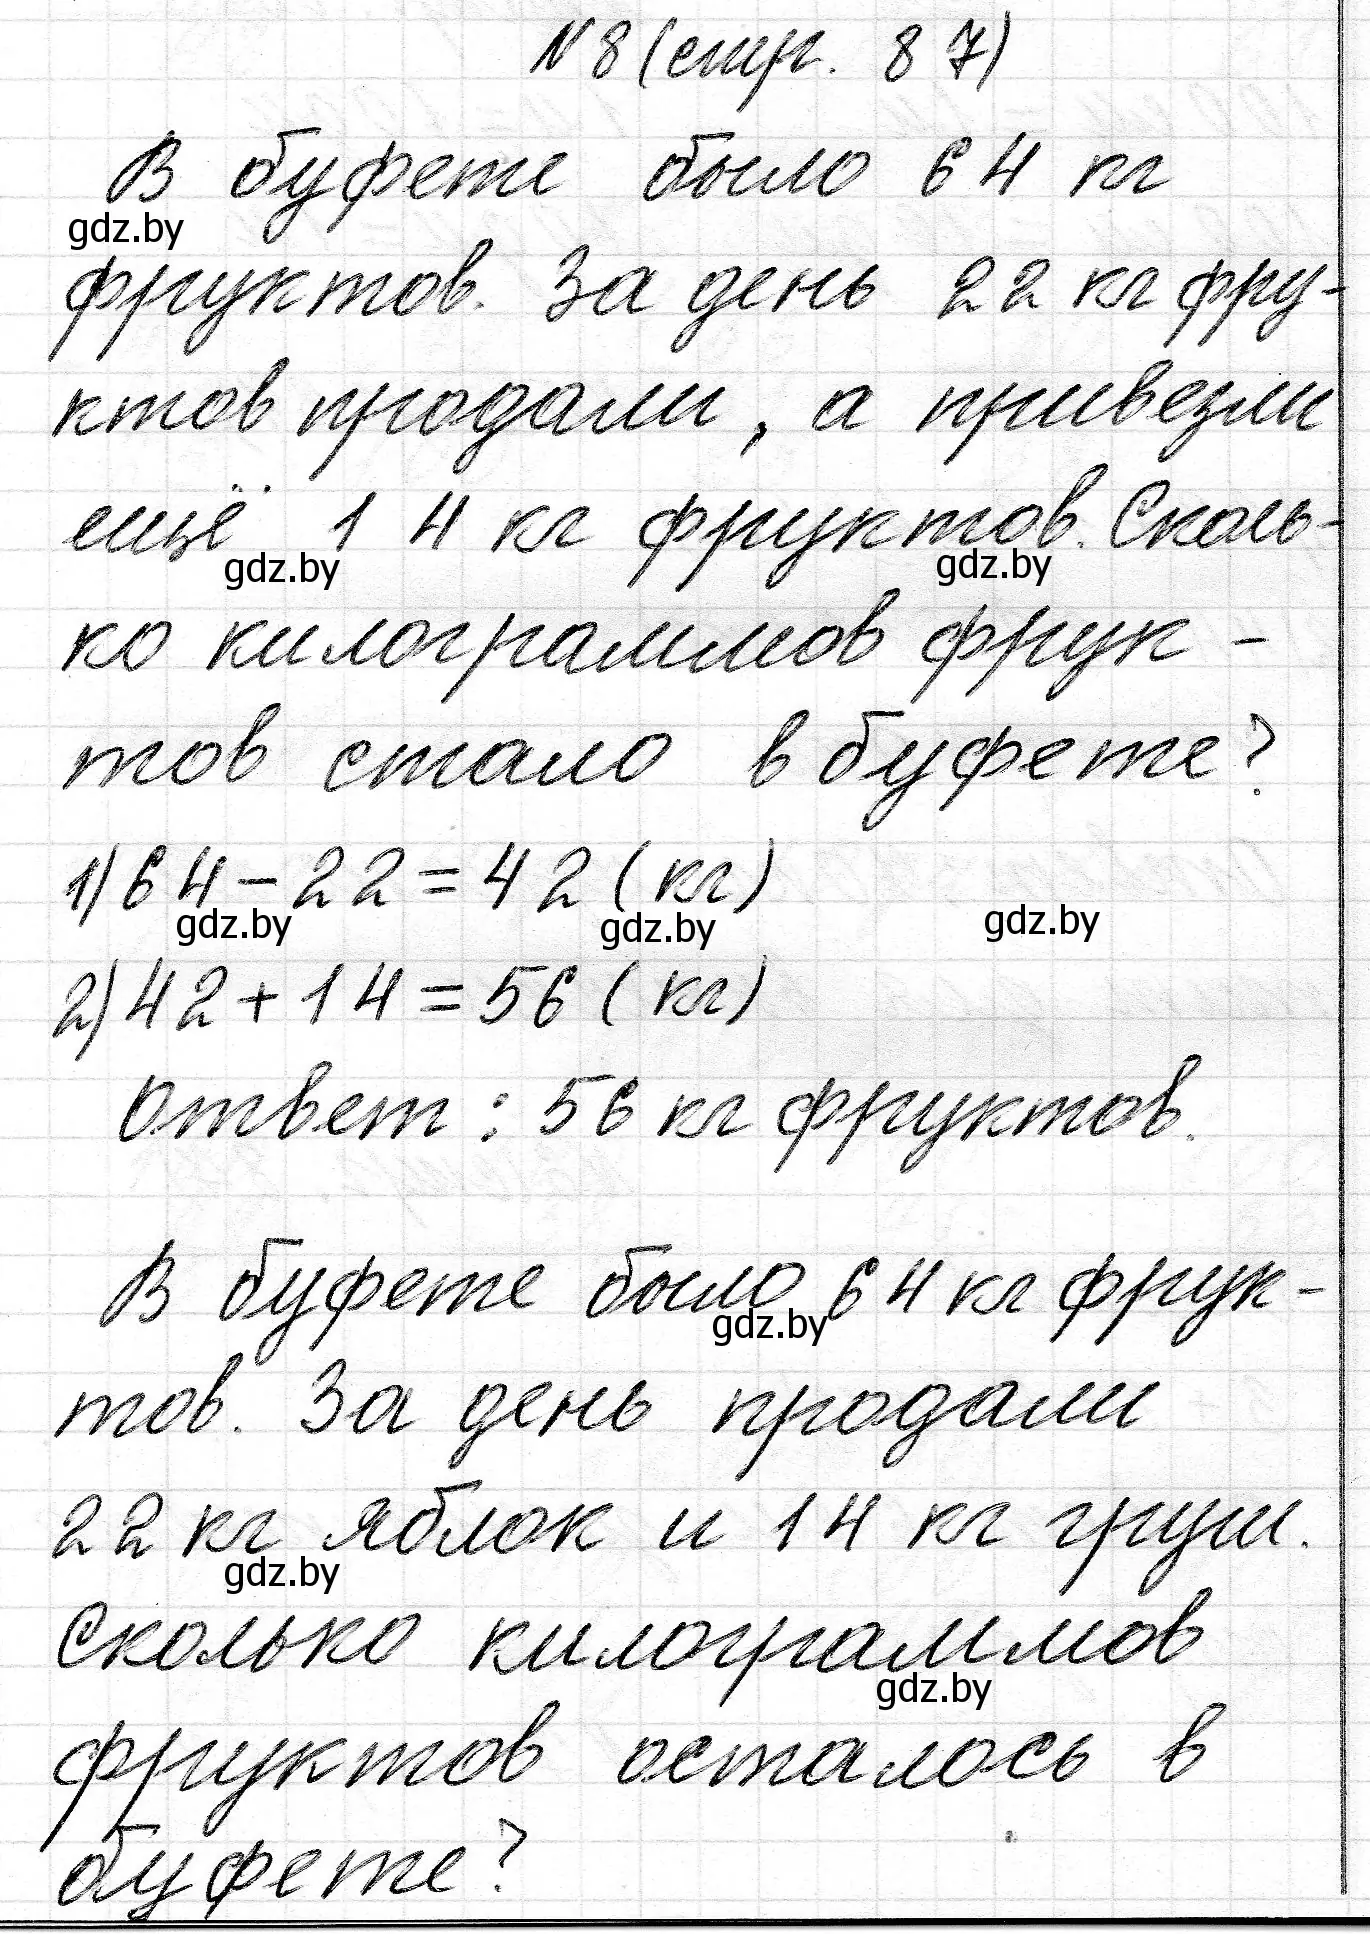 № 8 (стр. 87)
В буфете было 64 кг
gdz.by
фруктов. За день 22 кг фру-
ктов продали, а привезли
ещё 14 кг фруктов. Сколь-
gdz.by gdz.by
ко килограммов фрук-
тов стало в буфете?
1) 64 - 22 = 42 (кг)
gdz.by gdz.by gdz.by
2) 42 + 14 = 56 (кг)
Ответ: 56 кг фруктов.
В буфете было 64 кг фрук-
gdz.by
тов. За день продали
22 кг яблок и 14 кг груш.
gdz.by
Сколько килограммов
gdz.by
фруктов осталось в
буфете?